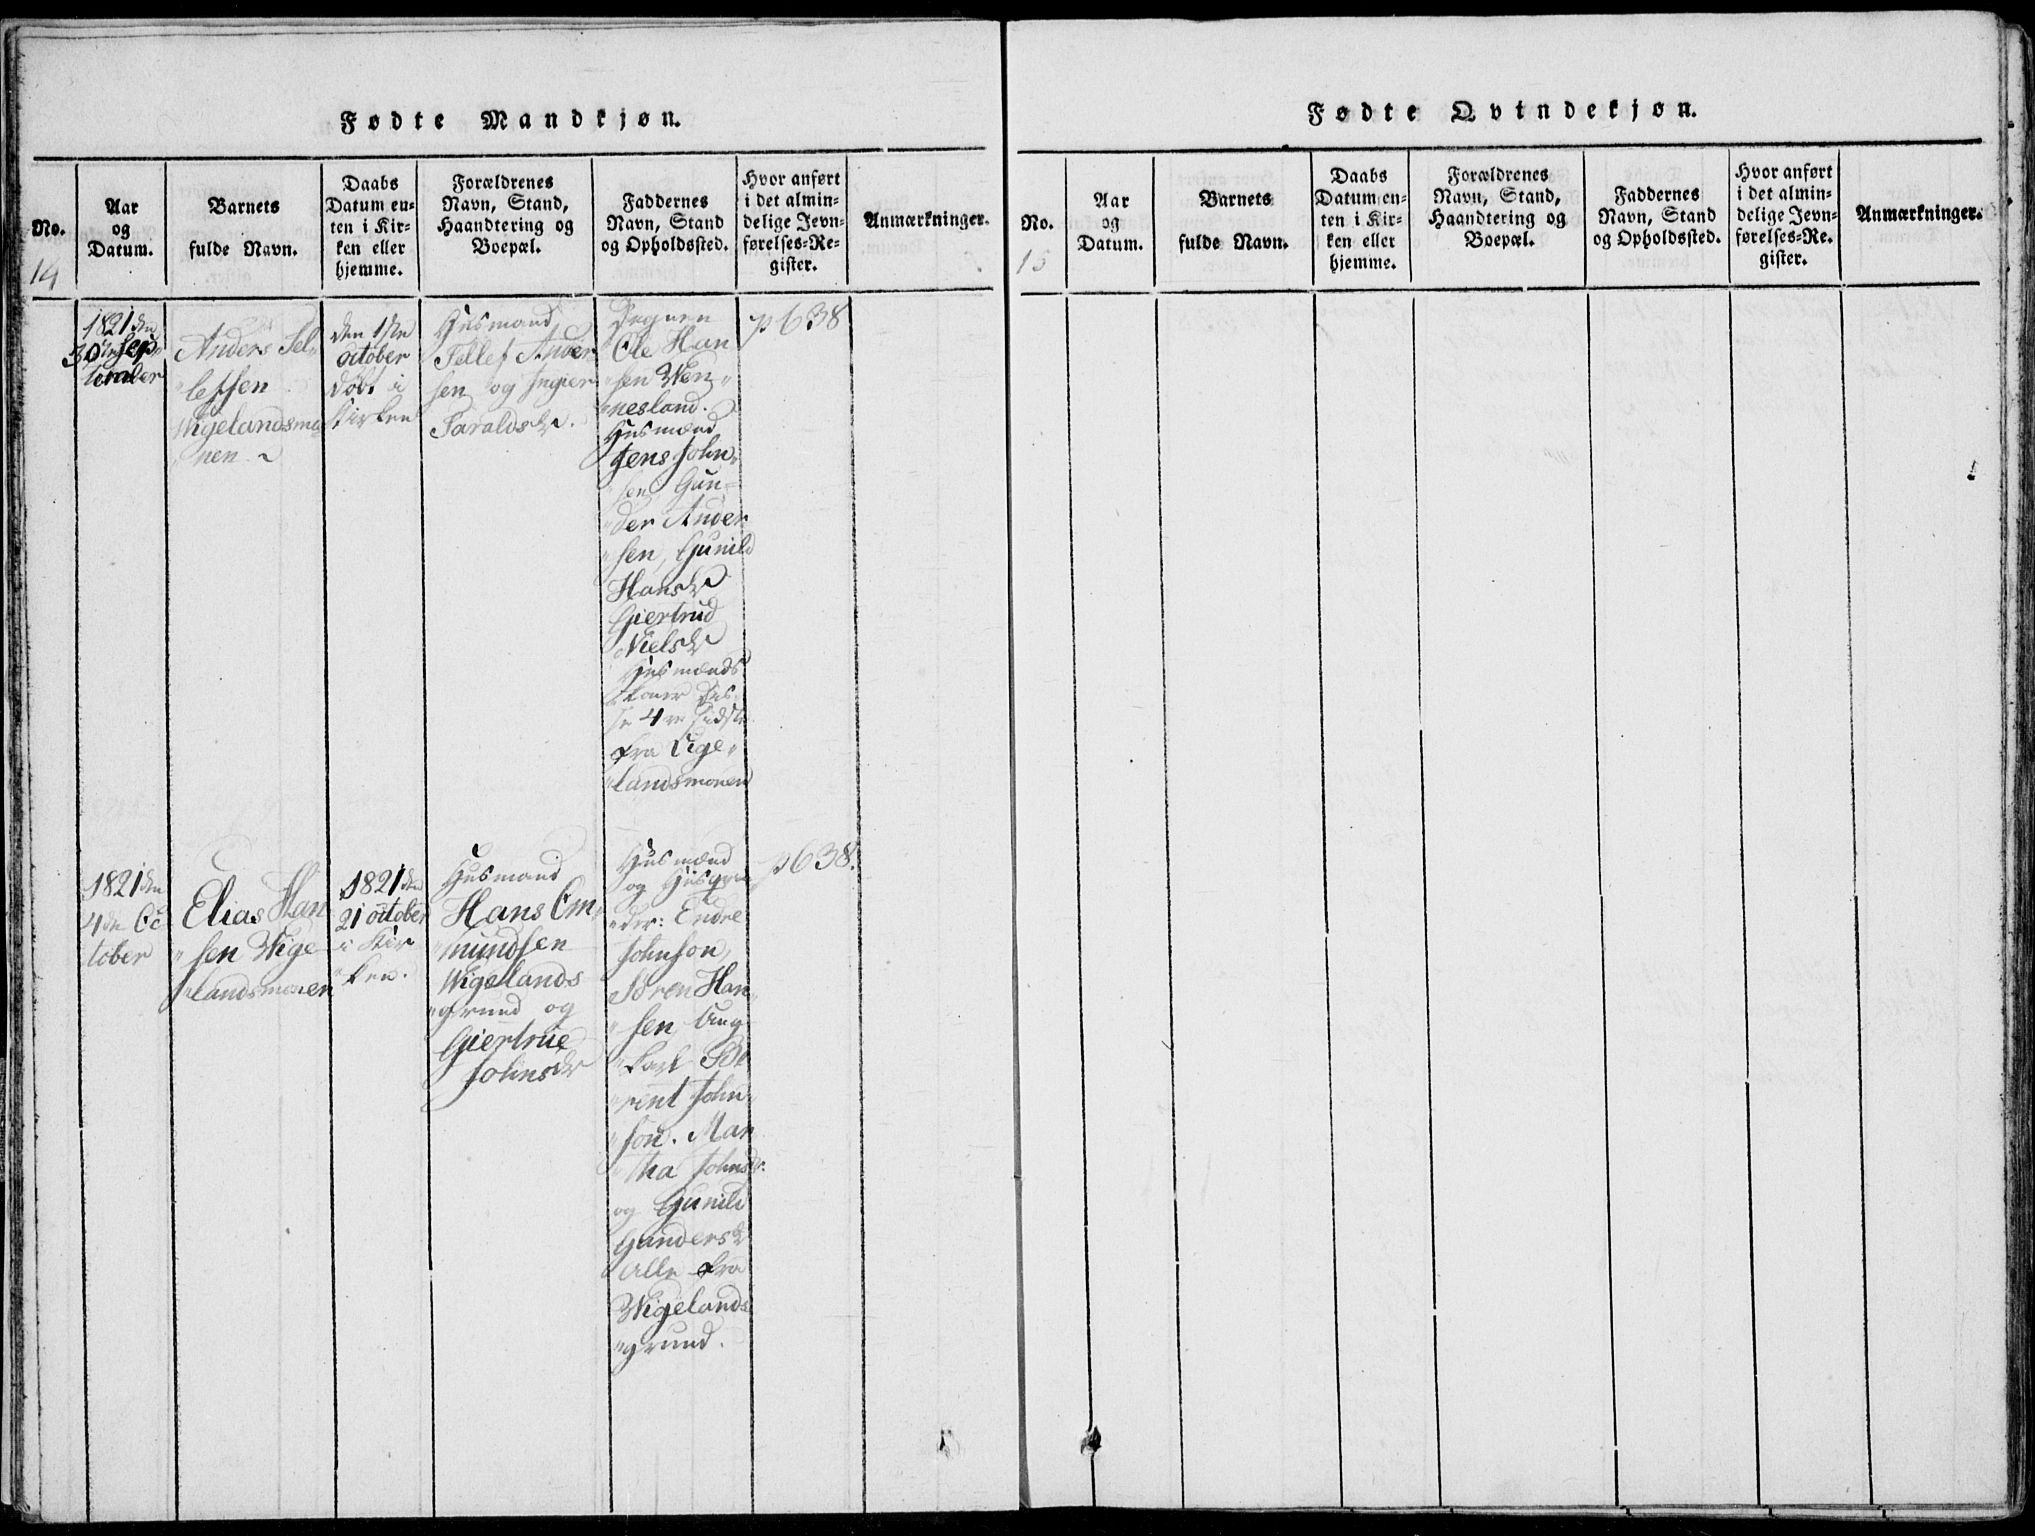 Fødte Mandkjøn.
No.
Aar
og
Datum.
Barnets
fulde Navn.
Daabs
Datum en-
ten i Kir-
ken eller
hjemme.
Forældrenes
Navn, Stand,
Haandtering og
Boepæl.
Faddernes
Navn, Stand
og Opholdssted.
Hvor anført
i det almin-
delige Jevn-
førelses-Re-
gister.
Anmærkninger.
14
1821 den
30te Sep-
tember
Anders Tel-
lefsen
Wigelandsmo-
nen
den 1ste
october
døbt i
Kirken
Husmand
Tellef Ander
sen og Ingier
Taraldsdr.
Degnen
Ole Han
sen Wen-
nesland.
Husmænd
Jens John-
sen Gun-
der Ander
sen, Gunild
Hansdr
Giertrud
Nielsdr
Husmænds
koner Dis-
se 4re sidste
fra Vige-
landsmonen
p 638
1821 den
4de Oc
tober
Elias Han
sen Wige
landsmonen
1821 den
21 october
i Kir
ken.
Husmand
Hans Om-
mundsen
Wigelands
grund og
Giertrue
Johnsdr
Husmænd
og
der: Endre
Johnson,
Søren Han-
sen, Ung-
karl Be
rent John-
son. Mar
tha Johnsdr.
og Gunild
Gundersdr
alle fra
Wigelands
grund.
p 638.
Fødte Qvindekjøn.
No.
Aar
og
Datum.
Barnets
fulde Navn.
Daabs
Datum en-
ten i Kir-
ken eller
hjemme.
Forældrenes
Navn, Stand,
Haandtering og
Boepæl.
Faddernes
Navn, Stand
og Opholdssted.
Hvor anført
i det almin-
delige Jevn-
førelses-Re-
gister.
Anmærkninger.
15